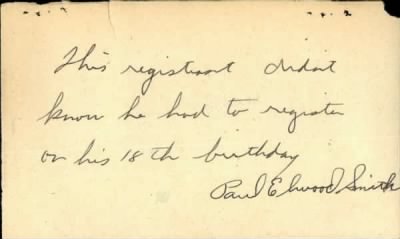 This registrant didnt
know he had to register
on his 18th birthday
Paul Elwood Smith